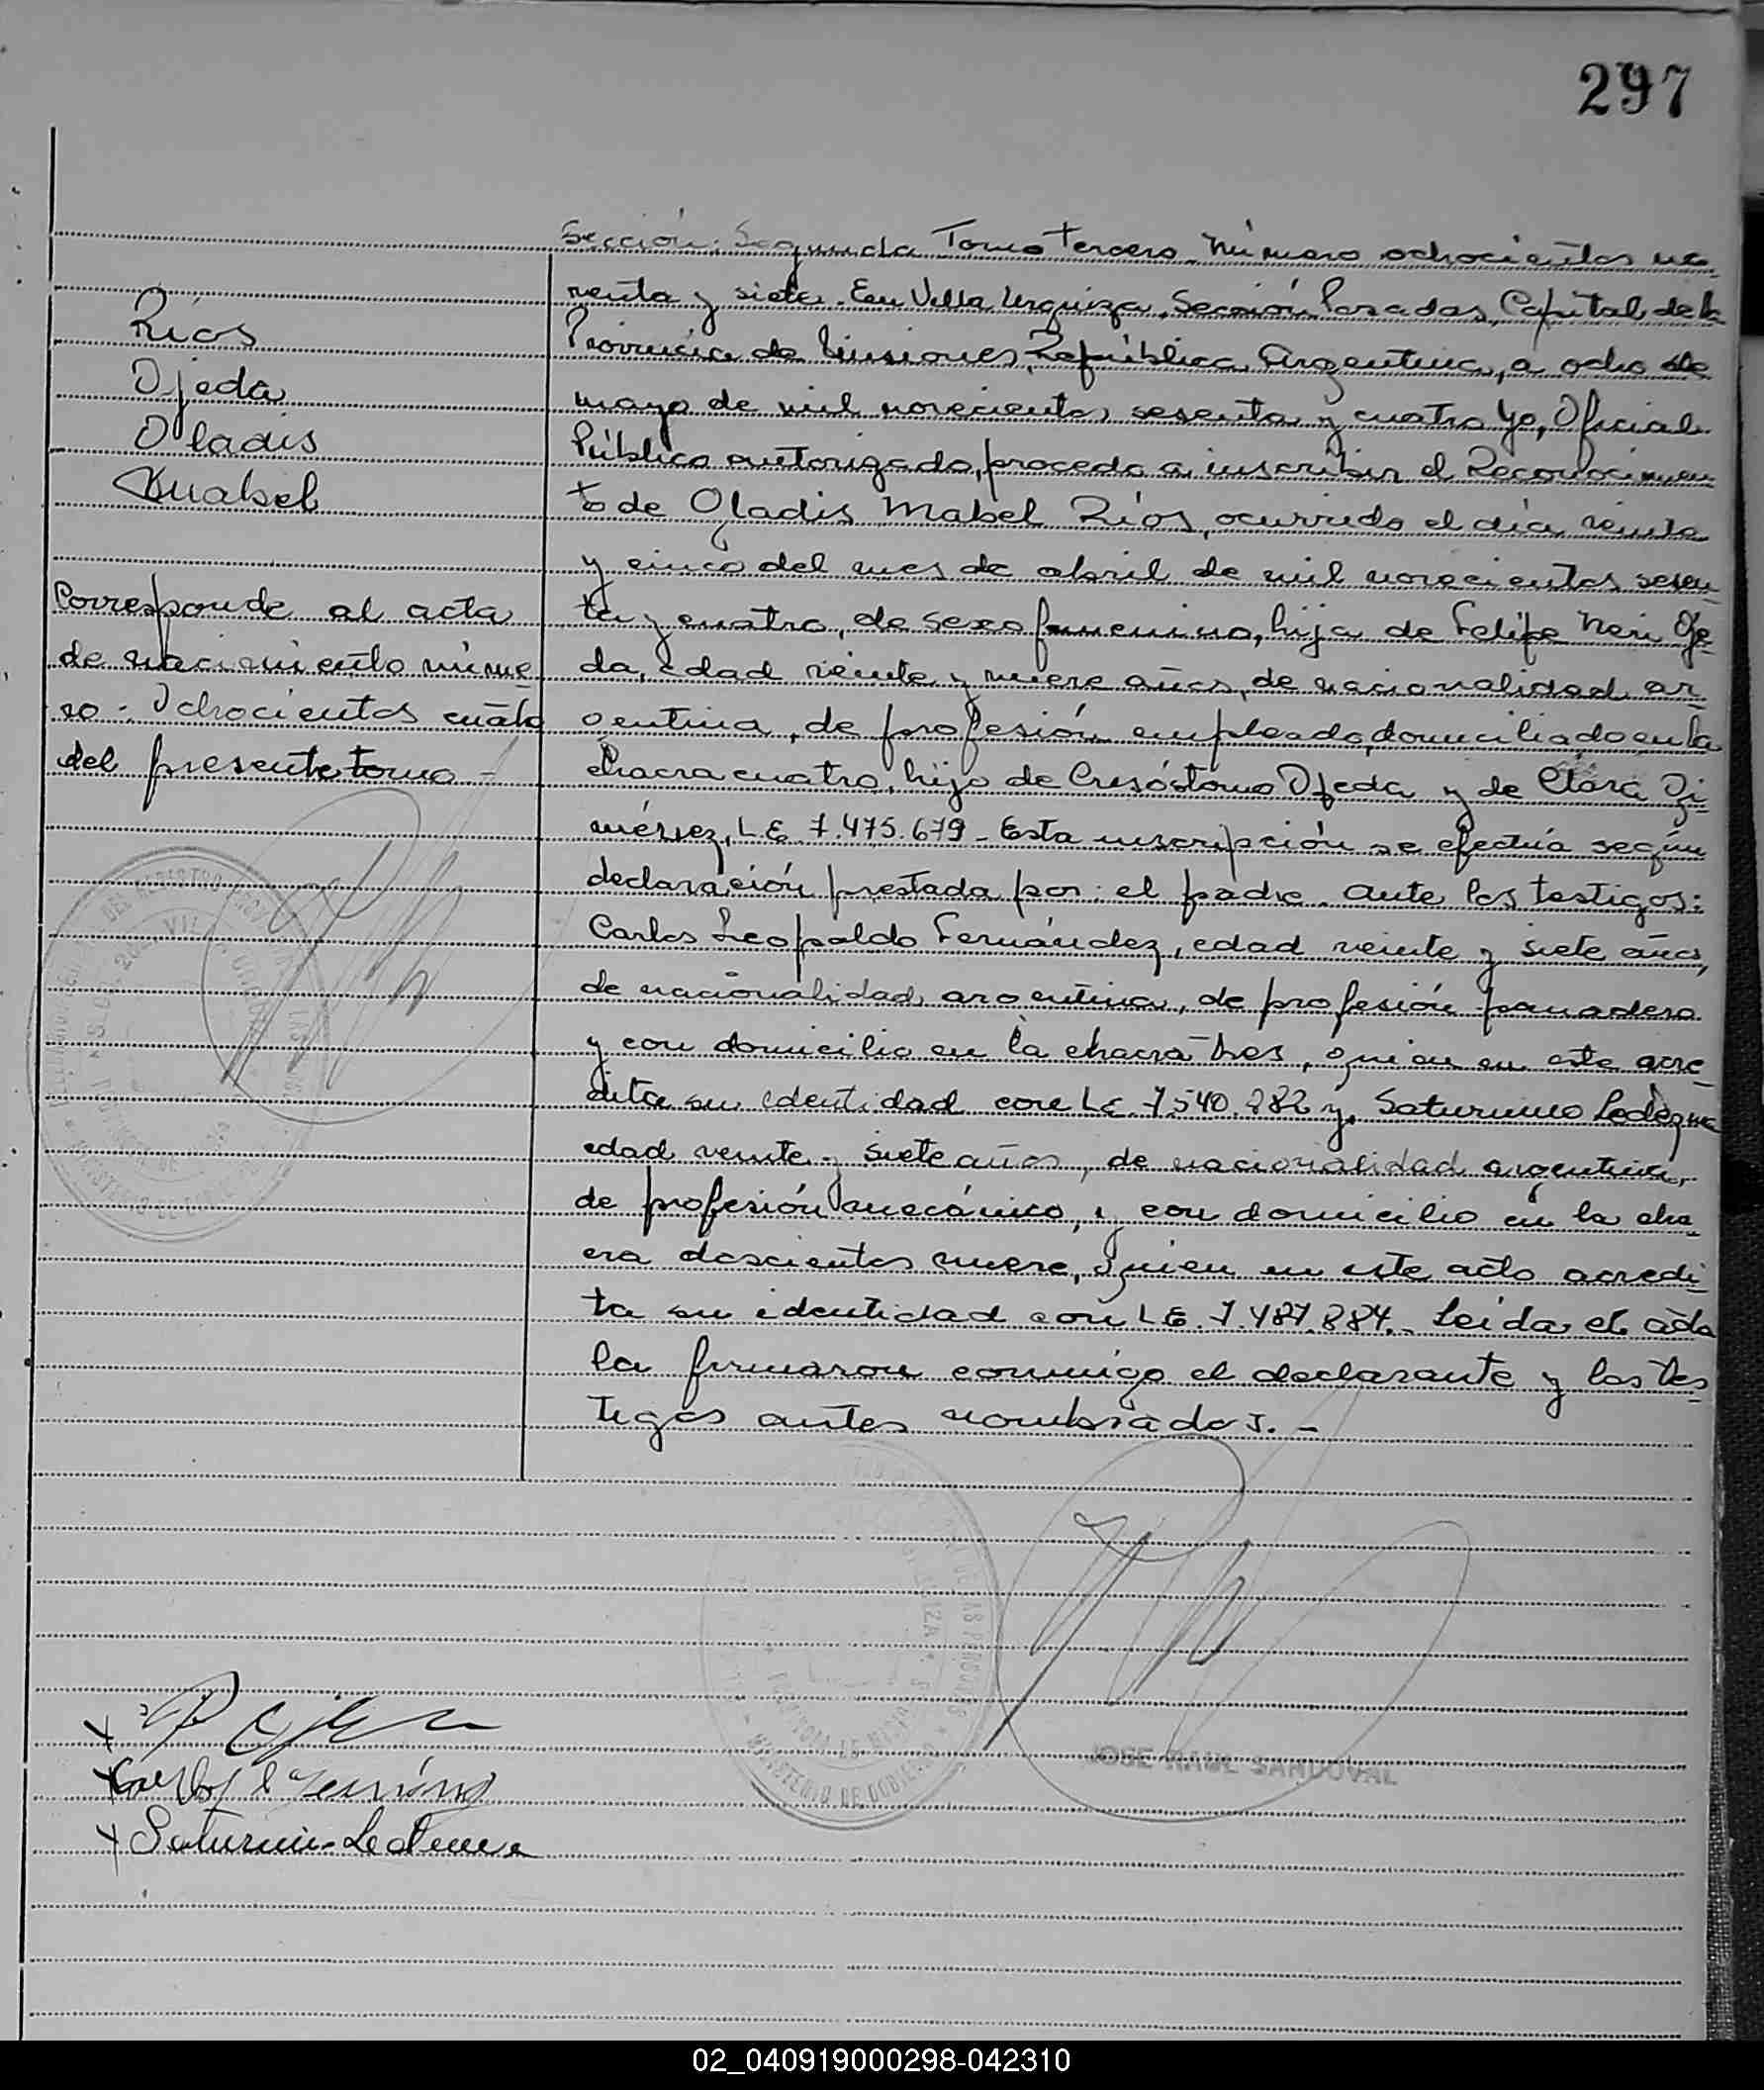 297
Sección Segunda Tomo tercero. Número ochocientos no
venta y siete. En Villa Urquiza, Sección Posadas, Capital de la
Provincia de Misiones, República Argentina, a ocho de
mayo de mil novecientos sesenta y cuatro yo, Oficial
Público autorizado, procedo a inscribir el Reconocimien
to de Gladis Mabel Ríos, ocurrido el día veinte
y cinco del mes de abril de mil novecientos sesen-
ta y cuatro, de sexo femenino, hija de Felipe Neri Oje-
da, edad veinte y nueve años, de nacionalidad ar-
gentina, de profesión empleado, domiciliado en la
chacra cuatro, hijo de Crisóstomo Ojeda y de Clara Gi-
ménez, L.E. 7.475.679 - Esta inscripción se efectúa según
declaración prestada por: el padre. Ante los testigos:
Carlos Leopoldo Fernández, edad veinte y siete años,
de nacionalidad argentina, de profesión panadero
y con domicilio en la chacra tres, quien en este acre-
dita su identidad con L.E. 7.540.882 y Saturnino Ledezma
edad veinte y siete años, de nacionalidad argentina,
de profesión mecánico, y con domicilio en la cha
cra doscientos nueve, quien en este acto acredi-
ta su identidad con L.E. 7.487.884. Leída el acta
la firmaron conmigo el declarante y los tes-
tigos antes nombrados. -
Ríos
Ojeda
Gladis
Mabel
Corresponde al acta
de nacimiento núme-
ro: Ochocientos cuatro
del presente tomo -
JOSE RAUL SANDOVAL
MINISTERIO DE GOBIERNO
02_040919000298-042310